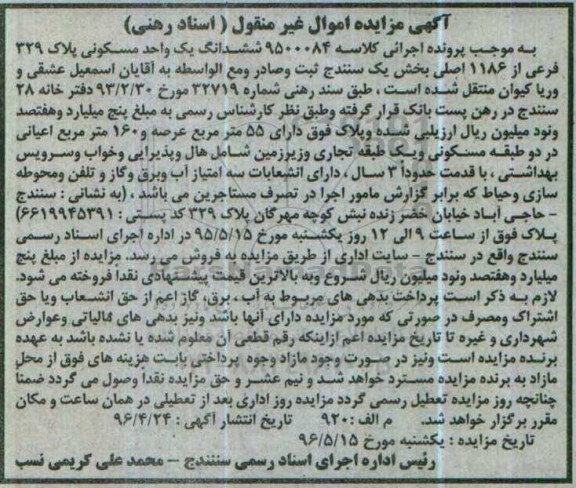 آگهی مزایده اموال غیر منقول ( اسناد رهنی)
به موجب پرونده اجرائی کلاسه ۹۵۰۰۰۸۴ ششدانگ یک واحد مسکونی پلاک ۳۲۹
فرعی از ۱۱۸۶ اصلی بخش یک سنندج ثبت وصادر ومع الواسطه به آقایان اسمعیل عشقی و
وریا کیوان منتقل شده است ، طبق سند رهنی شماره ۳۲۷۱۹ مورخ ۹۳/۲/۳۰ دفتر خانه ۲۸
سنندج در رهن پست بانک قرار گرفته وطبق نظر کارشناس رسمی به مبلغ پنج میلیارد وهفتصد
ونود میلیون ریال ارزیابی شده وپلاک فوق دارای ۵۵ متر مربع عرصه و۱۶۰ متر مربع اعیانی
در دو طبقه مسکونی ویک طبقه تجاری وزیرزمین شامل هال وپذیرایی وخواب وسرویس
بهداشتی ، با قدمت حدوداً ۳ سال ، دارای انشعابات سه امتیاز آب وبرق وگاز و تلفن ومحوطه
سازی وحیاط که برابر گزارش مامور اجرا در تصرف مستاجرین می باشد ، (به نشانی : سنندج
- حاجی آباد خیابان خضر زنده نبش کوچه مهرگان پلاک ۳۲۹ کد پستی : ۶۶۱۹۹۴۵۳۹۱)
پلاک فوق از ساعت ۹ الی ۱۲ روز یکشنبه مورخ ۹۵/۵/۱۵ در اداره اجرای اسناد رسمی
سنندج واقع در سنندج - سایت اداری از طریق مزایده به فروش می رسد. مزایده از مبلغ پنج
میلیارد وهفتصد ونود میلیون ریال شروع وبه بالاترین قیمت پیشنهادی نقدا فروخته می شود.
لازم به ذکر است پرداخت بدهی های مربوط به آب ، برق، گاز اعم از حق انشعاب ویا حق
اشتراک ومصرف در صورتی که مورد مزایده دارای آنها باشد ونیز بدهی های مالیاتی وعوارض
شهرداری و غیره تا تاریخ مزایده اعم ازاینکه رقم قطعی آن معلوم شده یا نشده باشد به عهده
برنده مزایده است ونیز در صورت وجود مازاد وجوه پرداختی بابت هزینه های فوق از محل
مازاد به برنده مزایده مسترد خواهد شد و نیم عشر و حق مزایده نقداً وصول می گردد ضمناً
چنانچه روز مزایده تعطیل رسمی گردد مزایده روز اداری بعد از تعطیلی در همان ساعت و مکان
مقرر برگزار خواهد شد. م الف : ۹۲۰ تاریخ انتشار آگهی : ۹۶/۴/۲۴
تاریخ مزایده : یکشنبه مورخ ۹۶/۵/۱۵
رئیس اداره اجرای اسناد رسمی سنندج - محمد علی کریمی نسب